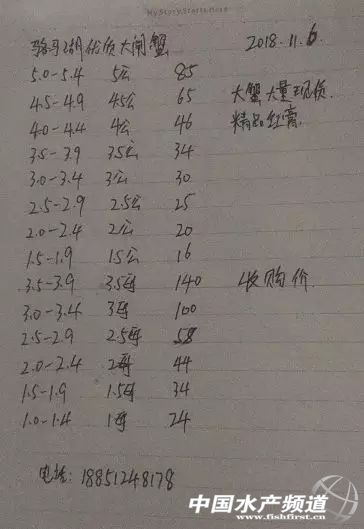 MyStory.Starts.Here
骆马湖优质大闸蟹 2018.11.6
5.0-5.4 5公 85
4.5-4.9 4.5公 65 大蟹大量现货.
4.0-4.4 4公 46 精品红膏.
3.5-3.9 3.5公 34
3.0-3.4 3公 30
2.5-2.9 2.5公 25
2.0-2.4 2公 20
1.5-1.9 1.5公 16
3.5-3.9 3.5母 140 收购价.
3.0-3.4 3母 100
2.5-2.9 2.5母 58
2.0-2.4 2母 44
1.5-1.9 1.5母 34
1.0-1.4 1母 24
电话: 18851248178
中国水产频道
www.fishfirst.cn